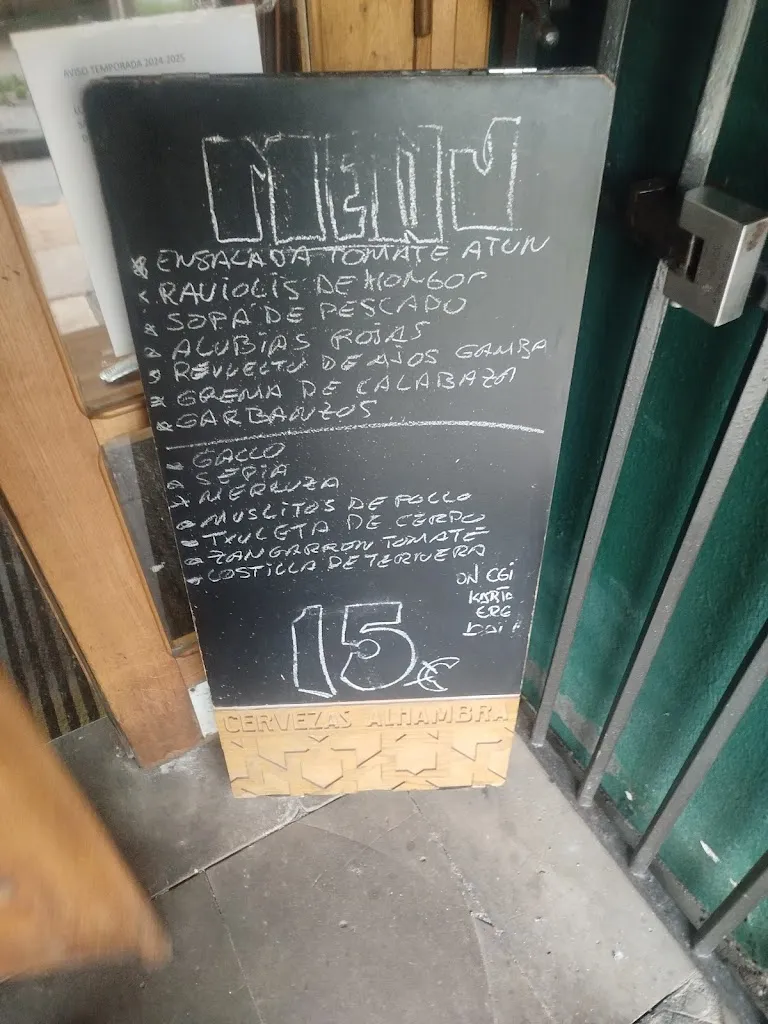 AVISO TEMPORADA 2024-2025
MENU
ENSALADA TOMATE ATUN
RAVIOLIS DE HONGOS
SOPA DE PESCADO
ALUBIAS ROJAS
REVUELTO DE AJOS GAMBA
CREMA DE CALABAZA
GARBANZOS
GALLO
SEPIA
MERLUZA
MUSLITOS DE POLLO
TXULETA DE CERDO
ZANGARRON TOMATE
COSTILLA DE TERNERA
ON EGI
KARTA
ERE
BAI
15€
CERVEZAS ALHAMBRA